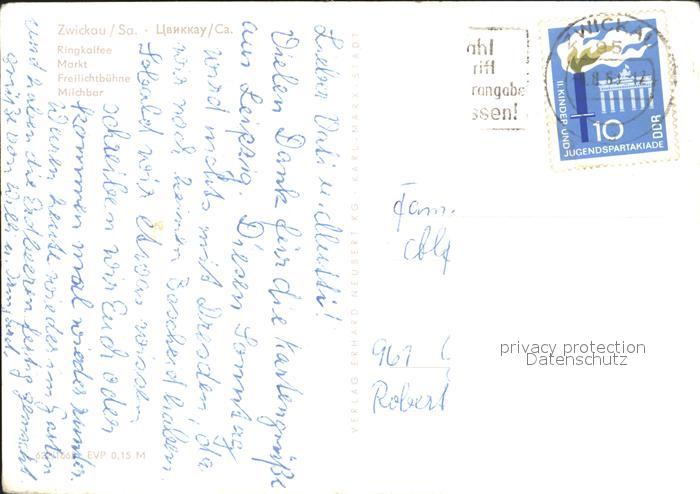 Zwickau / Sa. · Цвиккау/Са.
Ringkaffee
Markt
Freilichtbühne
Milchbar
Lieber Vati u. Mutti!
Vielen Dank für die Kartengrüße
aus Leipzig. Diesen Sonntag
wird nichts mit Dresden, da
wir noch keinen Bescheid haben.
Sobald wir etwas wissen,
schreiben wir Euch oder
kommen mal wieder runter.
Waren heute wieder im Garten
und haben die Erdbeeren fertig gemacht
grüße von
EVP 0,15 M
VERLAG ERHARD NEUBERT KG · KARL-MARX-STADT
ahl
rift
rangabe
ssen!
ZWICKAU
II. KINDER- UND
JUGENDSPARTAKIADE
10
DDR
Fam.
961
Robert
privacy protection
Datenschutz